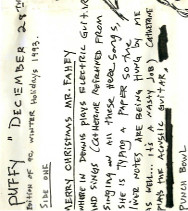 PUFFY" DECEMBER 28TH
EDITION OF THE WINTER HOLIDAYS 1993.
SIDE ONE
MERRY CHRISTMAS MR. FAHEY
WHERE IN DENNIS PLAYS ELECTRIC GUITAR
AND SINGS (CATHERINE REFRAINED FROM
SINGING ON ALL THESE HERE SONGS,
SHE IS TYPING A PAPER SO THE
LINER NOTES ARE BEING HUNG ON ME
AS WELL... IT'S A NASTY JOB) CATHERINE
PLAYS THE ACOUSTIC GUITAR.
PUNCH BOWL